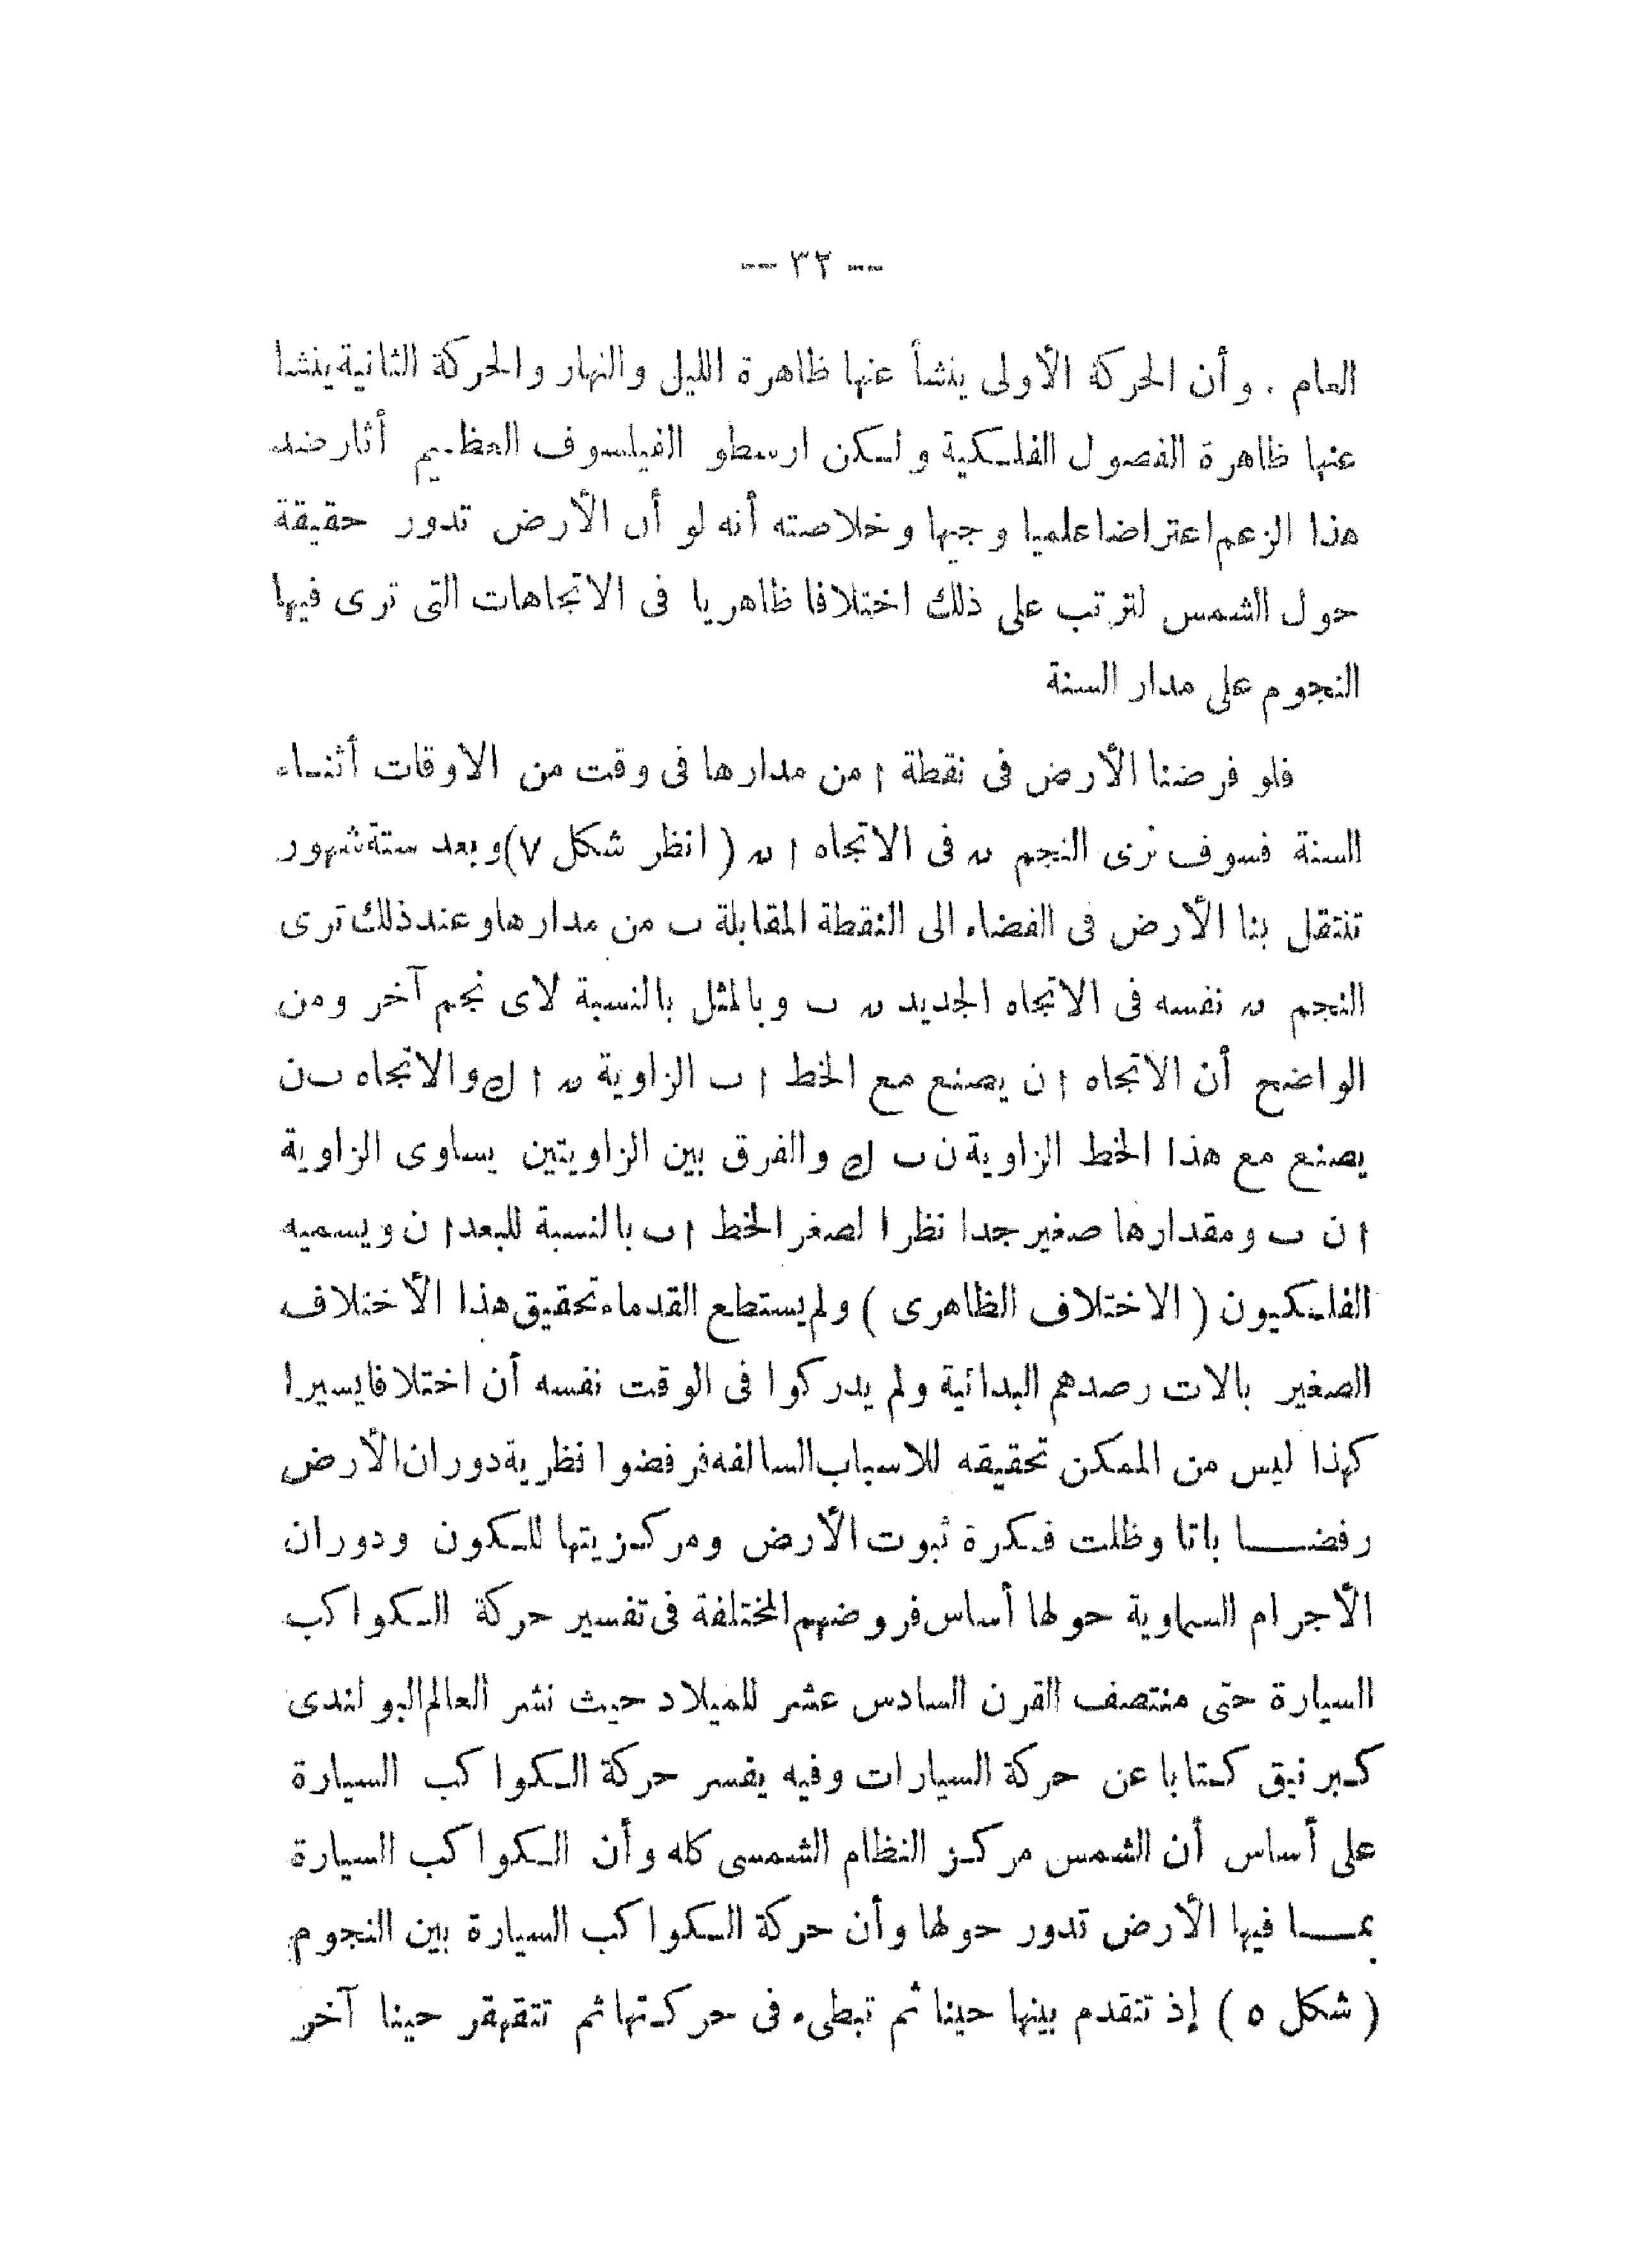 -- ٣٢ --
العام . وأن الحركة الأولى ينشأ عنها ظاهرة الليل والنهار والحركة الثانية ينشا
عنها ظاهرة الفصول الفلكية ولكن ارسطو الفيلسوف العظيم أثار ضد
هذا الزعم اعتراضا علميا وجيها وخلاصته أنه لو أن الأرض تدور حقيقة
حول الشمس لترتب على ذلك اختلافا ظاهريا فى الاتجاهات التى ترى فيها
النجوم على مدار السنة
فلو فرضنا الأرض فى نقطة ا من مدارها فى وقت من الاوقات أثناء
السنة فسوف نرى النجم ن فى الاتجاه ا ن ( انظر شكل ٧ ) وبعد ستة شهور
تنتقل بنا الأرض فى الفضاء الى النقطة المقابلة ب من مدارها وعند ذلك ترى
النجم ن نفسه فى الاتجاه الجديد ن ب وبالمثل بالنسبة لاى نجم آخر ومن
الواضح أن الاتجاه ا ن يصنع مع الخط ا ب الزاوية ن ا ك والاتجاه ب ن
يصنع مع هذا الخط الزاوية ن ب ك والفرق بين الزاويتين يساوى الزاوية
ا ن ب ومقدارها صغير جدا نظرا لصغر الخط ا ب بالنسبة للبعد ا ن ويسميه
الفلكيون ( الاختلاف الظاهرى ) ولم يستطع القدماء تحقيق هذا الأختلاف
الصغير بالات رصدهم البدائية ولم يدركوا فى الوقت نفسه أن اختلافا يسيرا
كهذا ليس من الممكن تحقيقه للاسباب السالفه فرفضوا نظرية دوران الأرض
رفضا باتا وظلت فكرة ثبوت الأرض ومركزيتها للكون ودوران
الأجرام السماوية حولها أساس فروضهم المختلفة فى تفسير حركة الكواكب
السيارة حتى منتصف القرن السادس عشر للميلاد حيث نشر العالم البولندى
كبرنيق كتابا عن حركة السيارات وفيه يفسر حركة الكواكب السيارة
على أساس أن الشمس مركز النظام الشمسى كله وأن الكواكب السيارة
بما فيها الأرض تدور حولها وأن حركة الكواكب السيارة بين النجوم
( شكل ٥ ) إذ تتقدم بينها حينا ثم تبطىء فى حركتها ثم تتقهقر حينا آخر